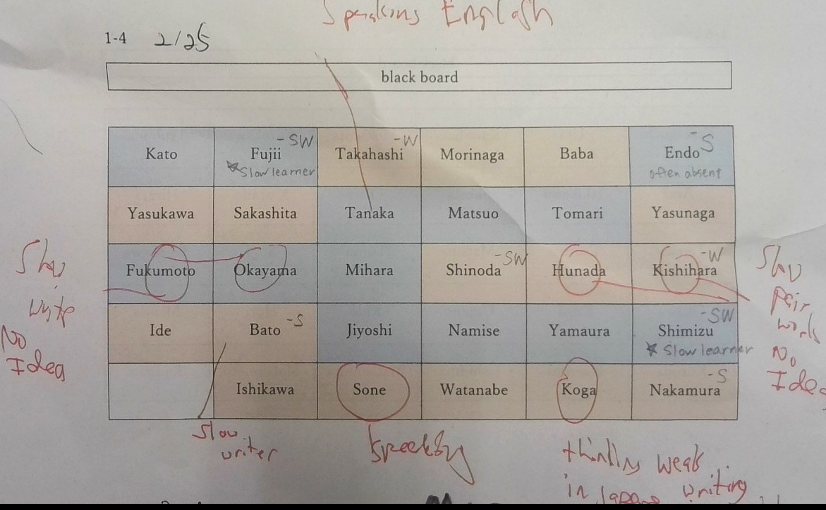 Speaking English
1-4 2/25
black board
Kato Fujii -SW Takahashi -W Morinaga Baba Endo -S
Slow learner often absent
Yasukawa Sakashita Tanaka Matsuo Tomari Yasunaga
Fukumoto Okayama Mihara Shinoda -SW Hunada Kishihara -W
Ide Bato -S Jiyoshi Namise Yamaura Shimizu -SW
Slow learner
Ishikawa Sone Watanabe Koga Nakamura -S
No
Idea
pair
work
No
Idea
Slow
writer
weak
in writing